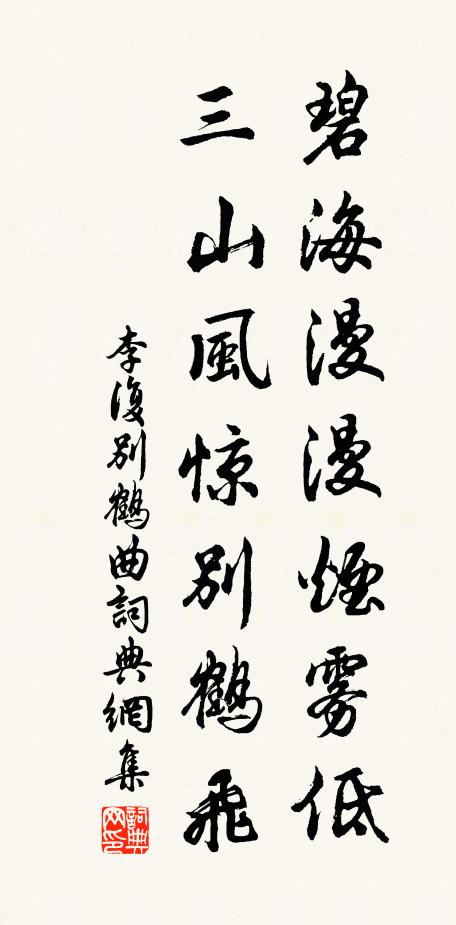 碧海漫漫煙雾低
三山風惊别鶴飛
李復别鶴曲詞典網集
詞典网印